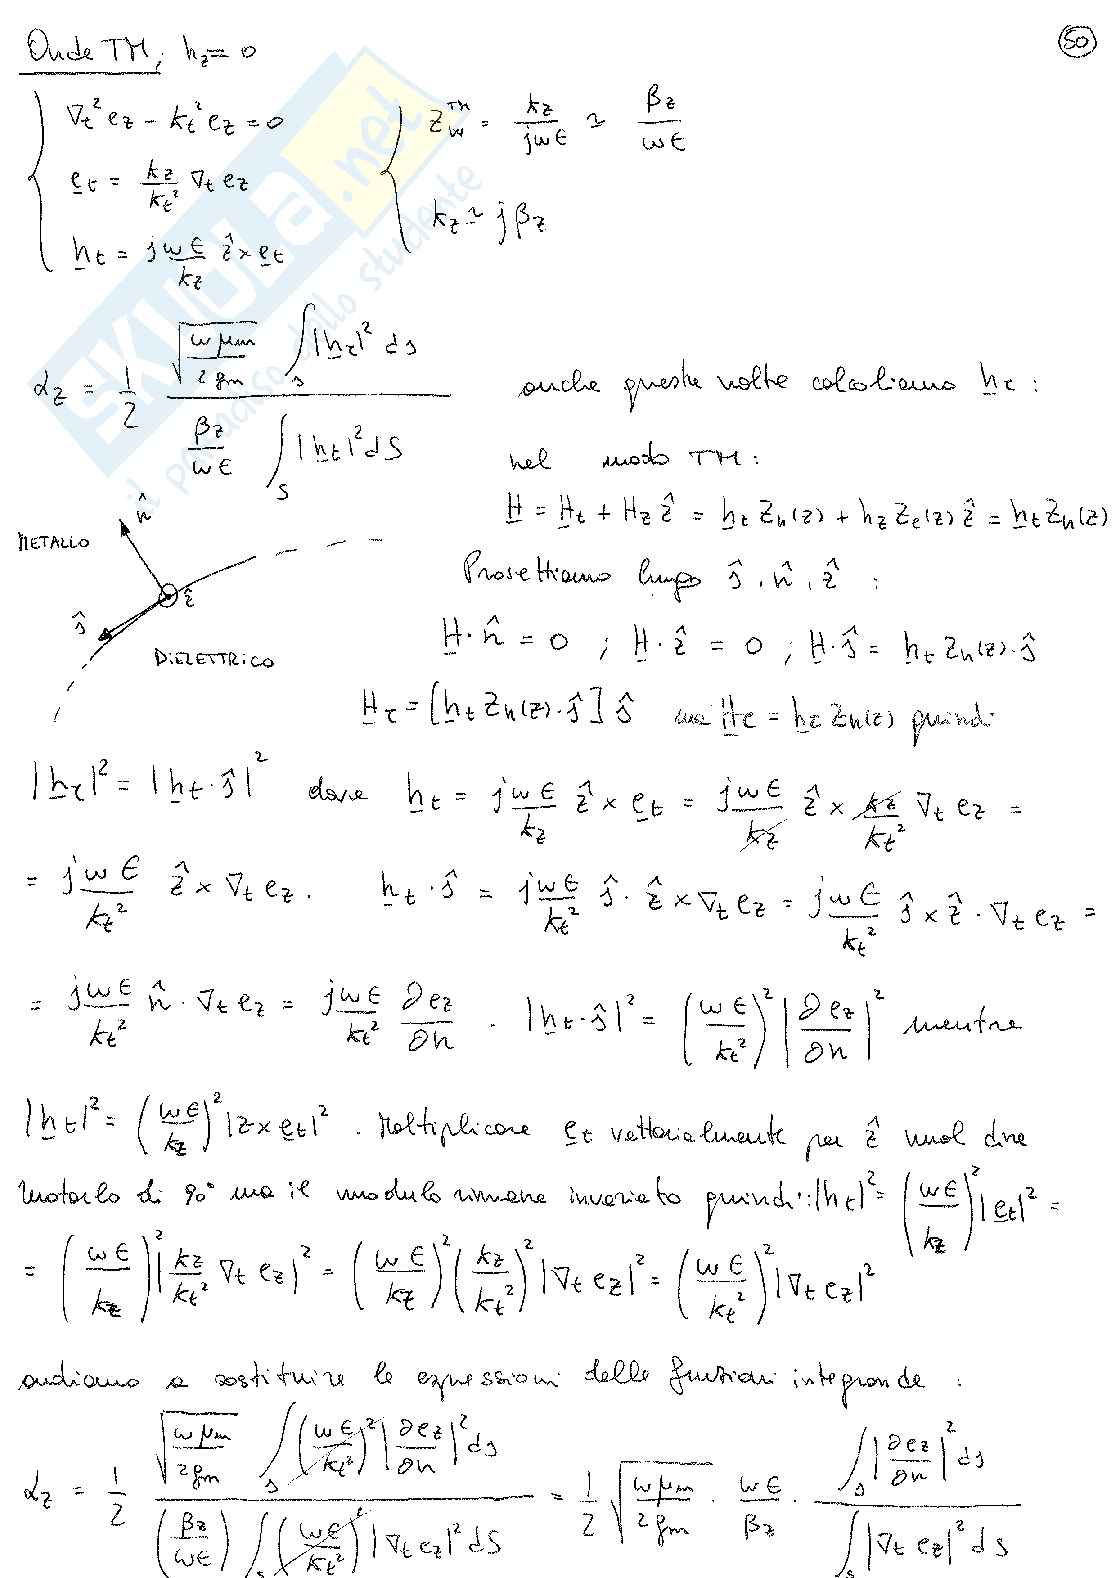 50
Onde TM, h_z = 0
∇_t² e_z − k_t² e_z = 0
e_t = k_z/k_t² ∇_t e_z
h_t = jωϵ/k_z ẑ × e_t
Z_W^TM = k_z/jωϵ ≃ β_z/ωϵ
k_z ≃ jβ_z
α_z = 1/2 · √(ωμ_m/2g_m) ∫_s |h_τ|² ds / (β_z/ωϵ ∫_S |h_t|² dS)
anche queste volte calcoliamo h_τ :
nel modo TM :
H = H_t + H_z ẑ = h_t Z_h(z) + h_z Z_e(z) ẑ = h_t Z_h(z)
METALLO
n̂
ŝ
ẑ
DIELETTRICO
Proiettiamo lungo ŝ, n̂, ẑ :
H · n̂ = 0 ; H · ẑ = 0 ; H · ŝ = h_t Z_h(z) · ŝ
H_τ = [h_t Z_h(z) · ŝ] ŝ ma H_τ = h_τ Z_h(z) quindi
|h_τ|² = |h_t · ŝ|² dove h_t = jωϵ/k_z ẑ × e_t = jωϵ/k_z ẑ × k_z/k_t² ∇_t e_z =
= jωϵ/k_t² ẑ × ∇_t e_z . h_t · ŝ = jωϵ/k_t² ŝ · ẑ × ∇_t e_z = jωϵ/k_t² ŝ × ẑ · ∇_t e_z =
= jωϵ/k_t² n̂ · ∇_t e_z = jωϵ/k_t² ∂e_z/∂n . |h_t · ŝ|² = (ωϵ/k_t²)² |∂e_z/∂n|² mentre
|h_t|² = (ωϵ/k_z)² |z × e_t|² . Moltiplicare e_t vettorialmente per ẑ vuol dire
ruotarlo di 90° ma il modulo rimane invariato quindi : |h_t|² = (ωϵ/k_z)² |e_t|² =
= (ωϵ/k_z)² |k_z/k_t² ∇_t e_z|² = (ωϵ/k_z)² (k_z/k_t²)² |∇_t e_z|² = (ωϵ/k_t²)² |∇_t e_z|²
andiamo a sostituire le espressioni delle funzioni integrande :
α_z = 1/2 · √(ωμ_m/2g_m) ∫_s (ωϵ/k_t²)² |∂e_z/∂n|² ds / ((β_z/ωϵ) ∫_S (ωϵ/k_t²)² |∇_t e_z|² dS) = 1/2 √(ωμ_m/2g_m) · ωϵ/β_z · ∫_s |∂e_z/∂n|² ds / ∫_S |∇_t e_z|² dS
SKUOLA.net
il paradiso dello studente